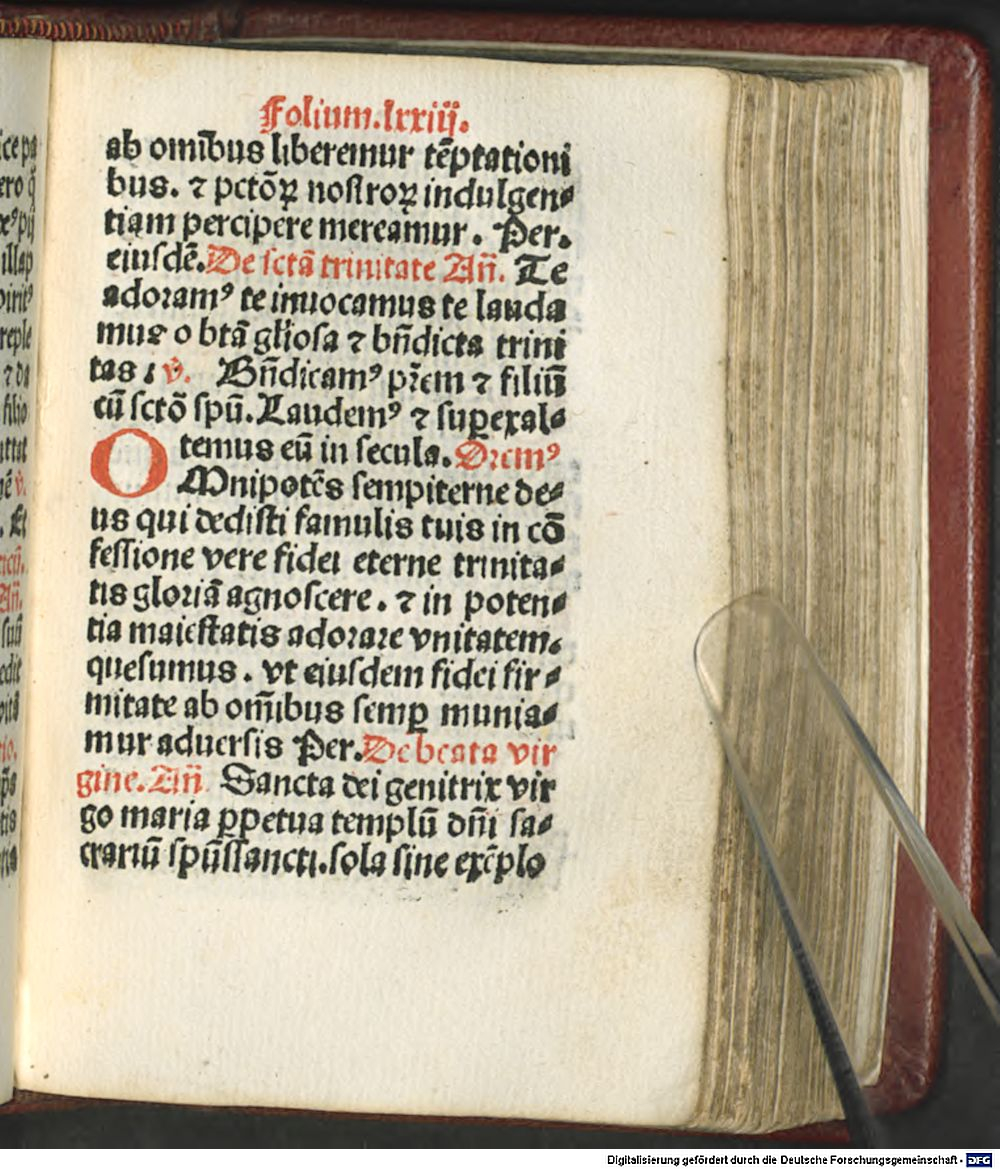 Folium.lxxiij.
ab omībus liberemur tēptationi
bus. ⁊ pctōꝝ nostroꝝ indulgen⸗
tiam percipere mereamur. Per.
eiusdē. De sctā trinitate Añ. Te
adoramꝰ te inuocamus te lauda
mus o btā gl̄iosa ⁊ bn̄dicta trini
tas: v̄. Bn̄dicamꝰ pr̄em ⁊ filiū
cū sctō spū. Laudemꝰ ⁊ suꝑexal⸗
temus eū in secula. Oremꝰ
OMnipotēs sempiterne de⸗
us qui dedisti famulis tuis in cō
fessione vere fidei eterne trinita⸗
tis gloriā agnoscere. ⁊ in poten⸗
tia maiestatis adorare vnitatem.
quesumus. vt eiusdem fidei fir⸗
mitate ab om̄ibus semꝑ munia⸗
mur aduersis Per. De beata vir
gine. Añ Sancta dei genitrix vir
go maria ꝑpetua templū dn̄i sa⸗
crariū spūssancti. sola sine exēplo
Digitalisierung gefördert durch die Deutsche Forschungsgemeinschaft - DFG